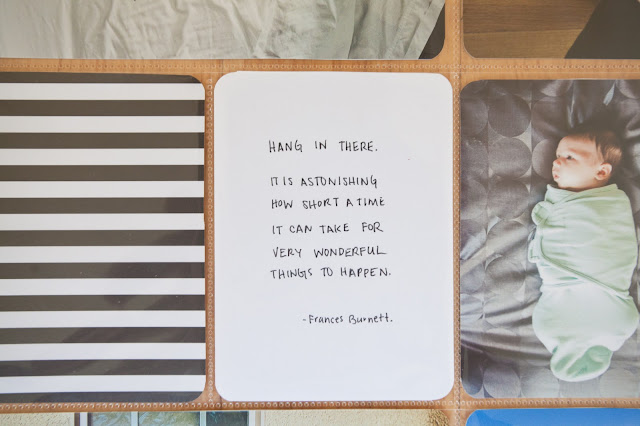 HANG IN THERE.
IT IS ASTONISHING
HOW SHORT A TIME
IT CAN TAKE FOR
VERY WONDERFUL
THINGS TO HAPPEN.
-Frances Burnett.